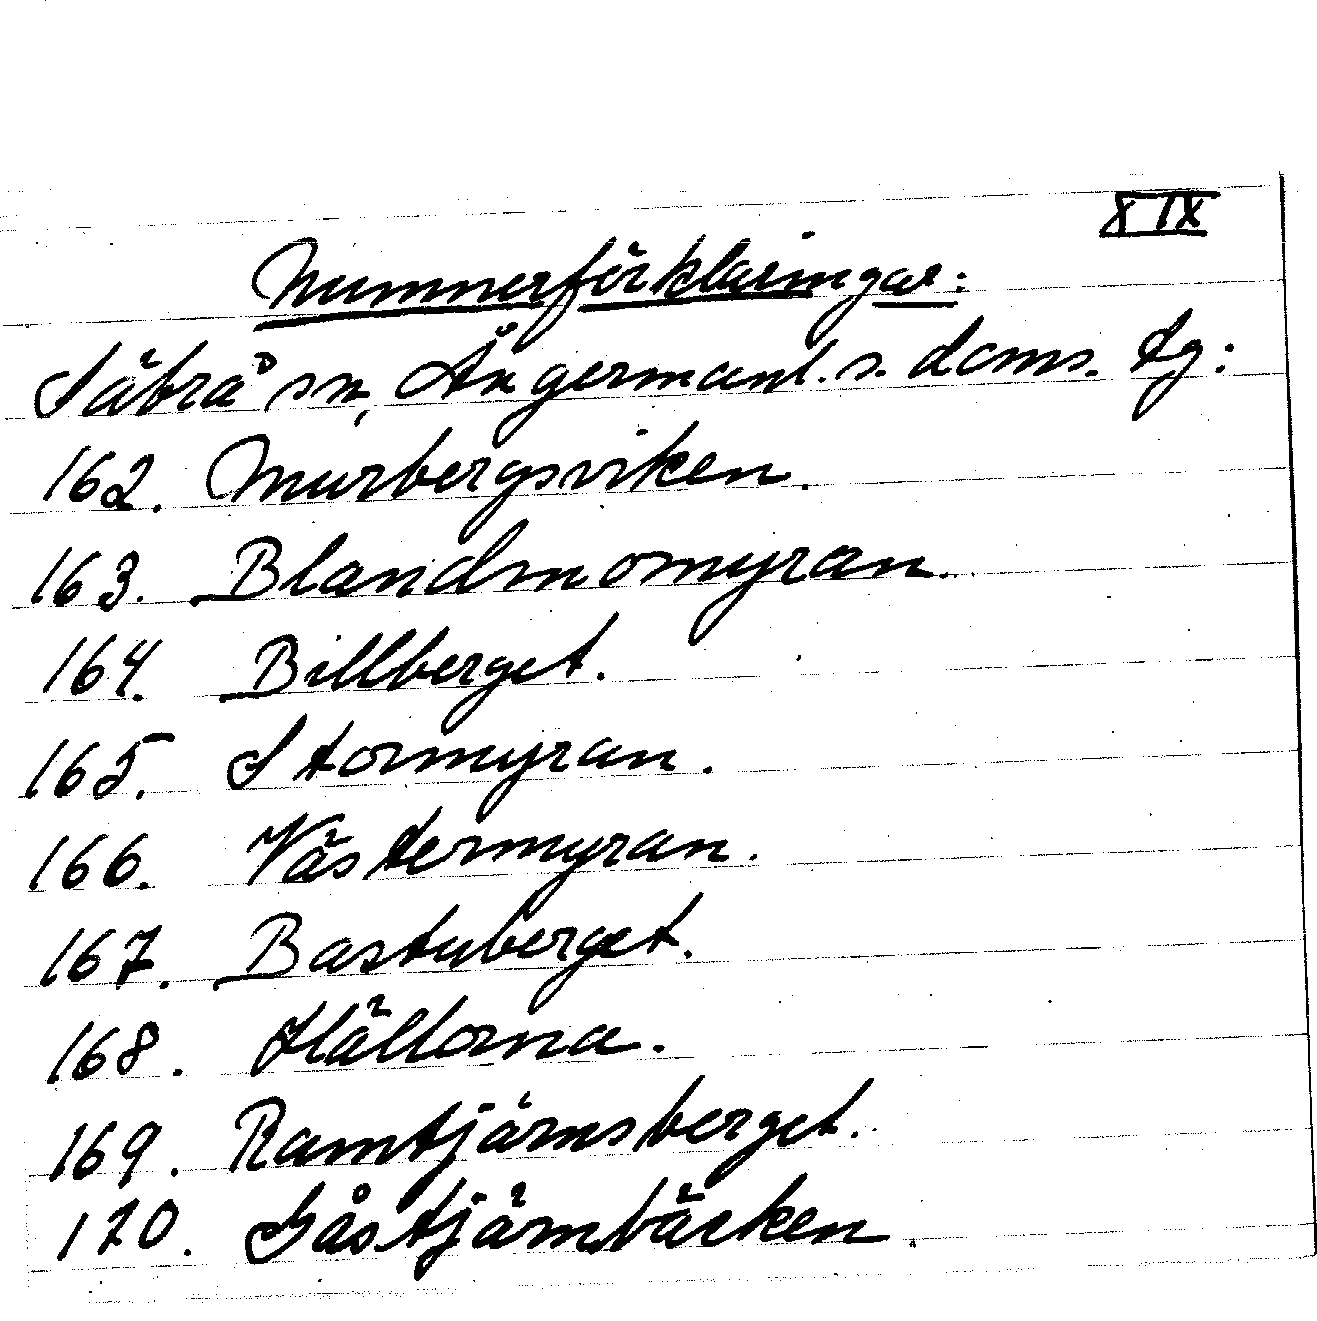 XIX
Nummerförklaringar:
Säbrå sn, Ångermanl. s. doms. tg:
162. Murbergsviken.
163. Blandmomyran.
164. Billberget.
165. Stormyran.
166. Västermyran.
167. Bastuberget.
168. Hällorna.
169. Ramtjärnsberget.
170. Gåstjärnbäcken.